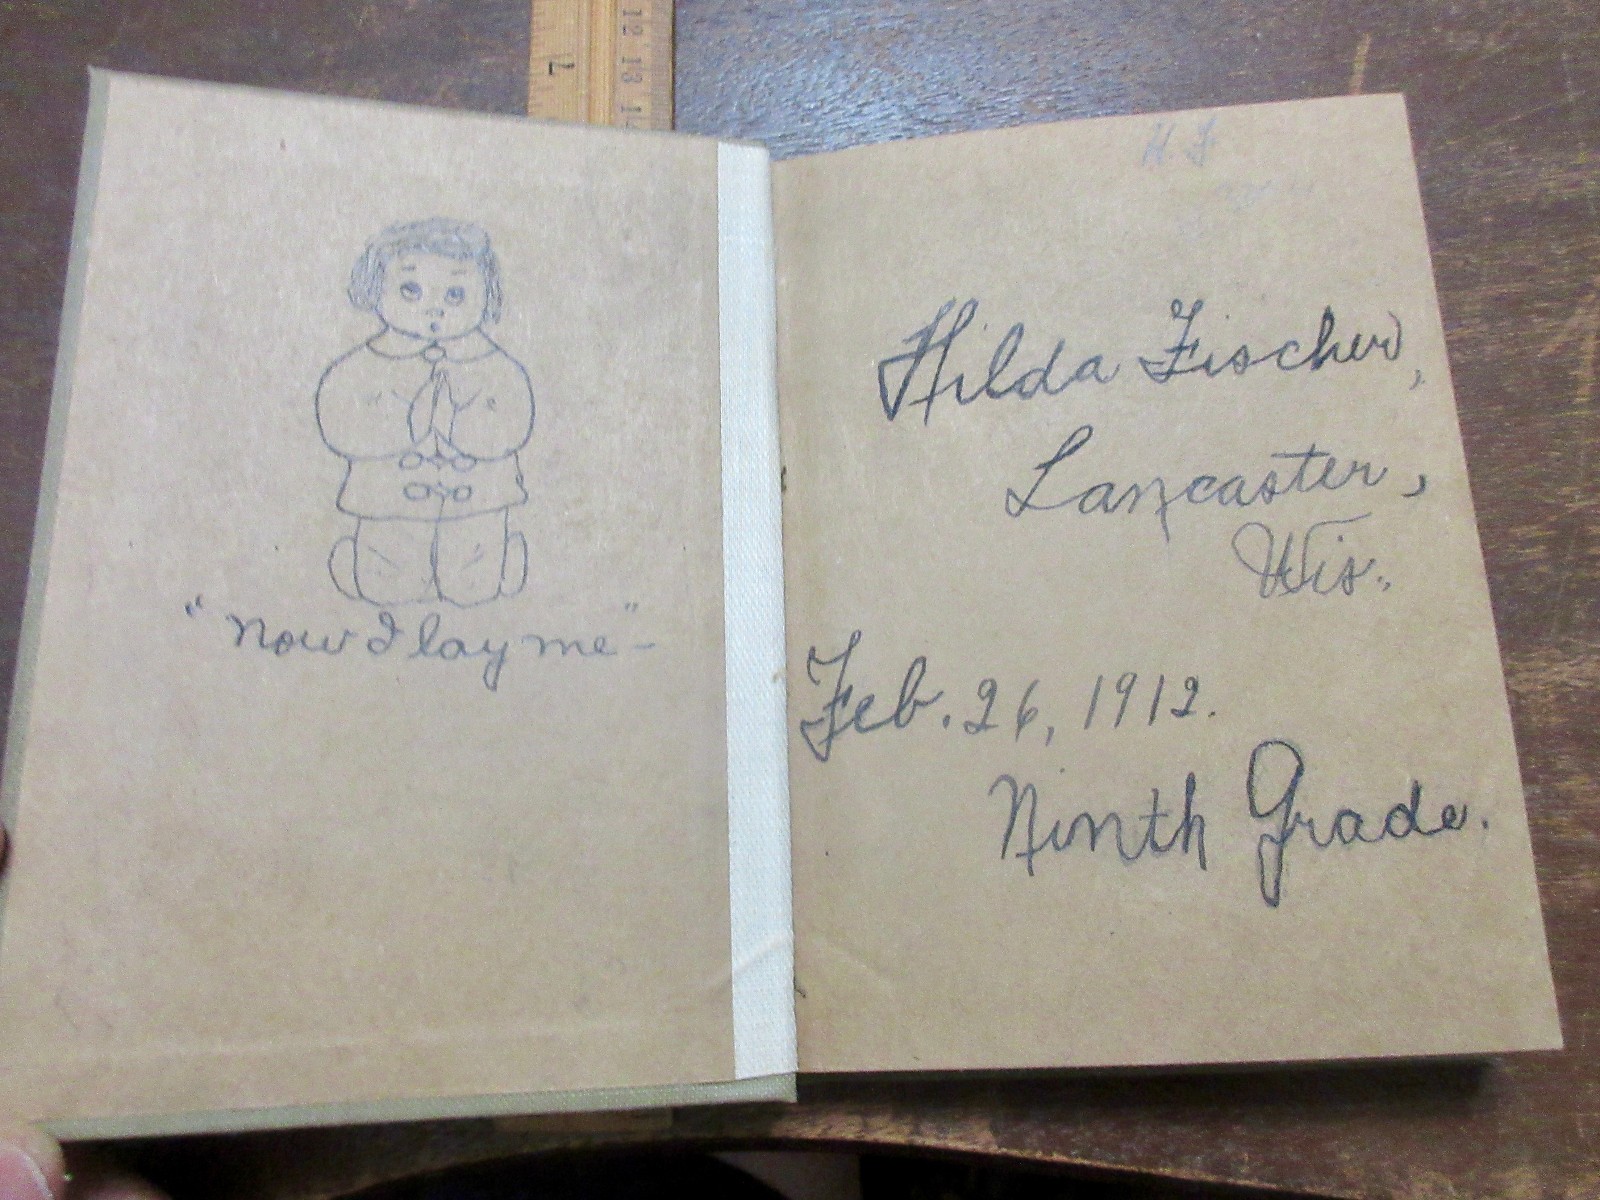 7
12 13 14
"Now I lay me"-
H. F.
Hilda Fischer,
Lancaster,
Wis.
Feb. 26, 1912.
Ninth Grade.